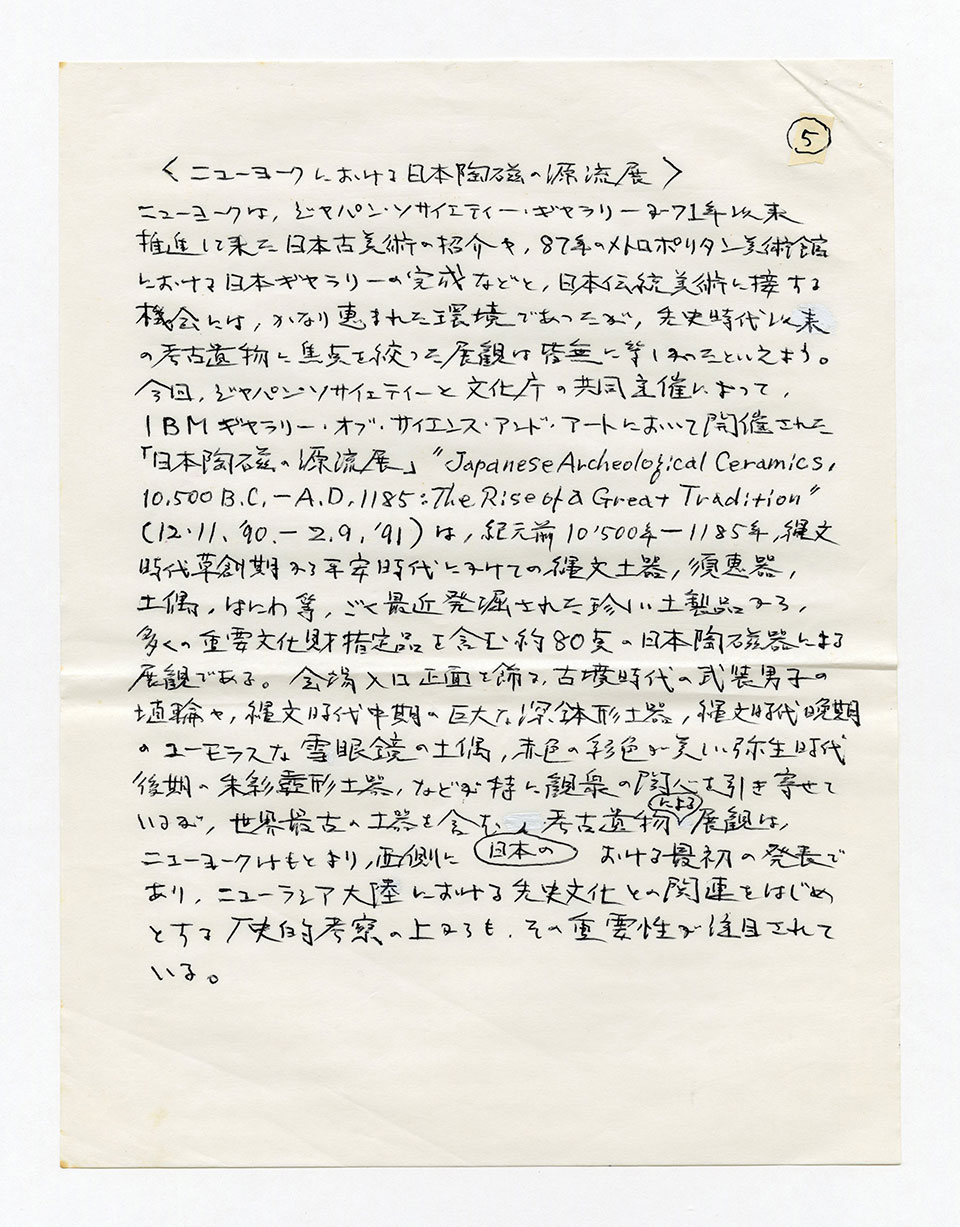 5
〈ニューヨークにおける日本陶磁の源流展〉
ニューヨークは、ジャパン・ソサイエティー・ギャラリーが71年以来
推進して来た日本古美術の紹介や、87年のメトロポリタン美術館
における日本ギャラリーの完成などと、日本伝統美術に接する
機会には、かなり恵まれた環境であったが、先史時代以来
の考古遺物に焦点を絞った展観は皆無に等しかったといえよう。
今回、ジャパン・ソサイエティーと文化庁の共同主催によって、
IBMギャラリー・オブ・サイエンス・アンド・アートにおいて開催された
「日本陶磁の源流展」"Japanese Archeological Ceramics,
10,500 B.C. – A.D. 1185 : The Rise of a Great Tradition"
(12.11, '90. – 2.9, '91) は、紀元前10'500年ー1185年、縄文
時代草創期から平安時代にかけての縄文土器、須恵器、
土偶、はにわ等、ごく最近発掘された珍しい土製品から、
多くの重要文化財指定品を含む約80点の日本陶磁器による
展観である。会場入口正面を飾る、古墳時代の武装男子の
埴輪や、縄文時代中期の巨大な深鉢形土器、縄文時代晩期
のユーモラスな雪眼鏡の土偶、赤色の彩色が美しい弥生時代
後期の朱彩壺形土器、などが特に観衆の関心を引き寄せて
いるが、世界最古の土器を含む、考古遺物による展観は、
ニューヨークはもとより、西側に日本のおける最初の発表で
あり、ユーラシア大陸における先史文化との関連をはじめ
とする歴史的考察の上からも、その重要性が注目されて
いる。